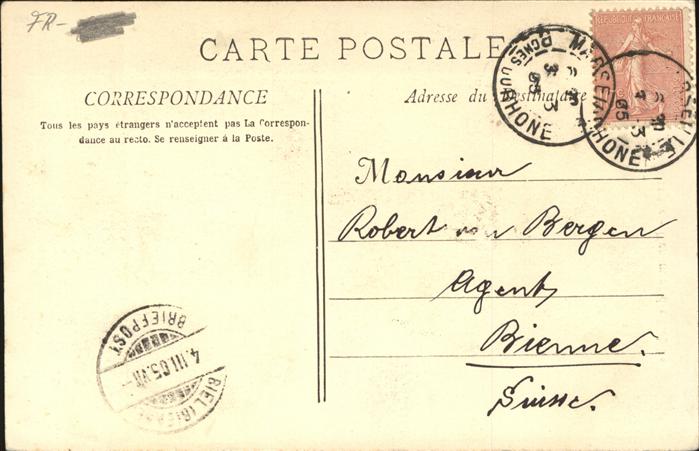 FR-
CARTE POSTALE
RÉPUBLIQUE FRANÇAISE
CORRESPONDANCE
Tous les pays étrangers n'acceptent pas La Correspon-
dance au recto. Se renseigner à la Poste.
Adresse du Destinataire
MARSEILLE
BCHES DU RHONE
3 05
Monsieur
Robert von Bergen
Agent,
Bienne.
Suisse.
BRIEFPOST
4.III.05.VII-
BIEL (BIENNE)